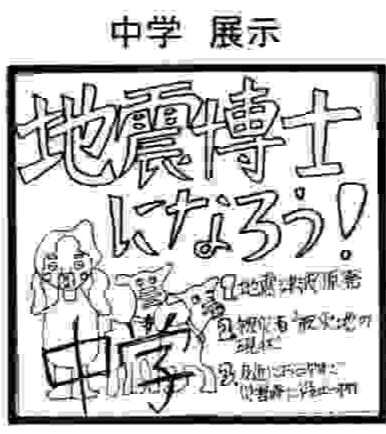 中学 展示
地震博士
になろう!
中学
1地震 津波 原発
2被災者 被災地の
現状
3